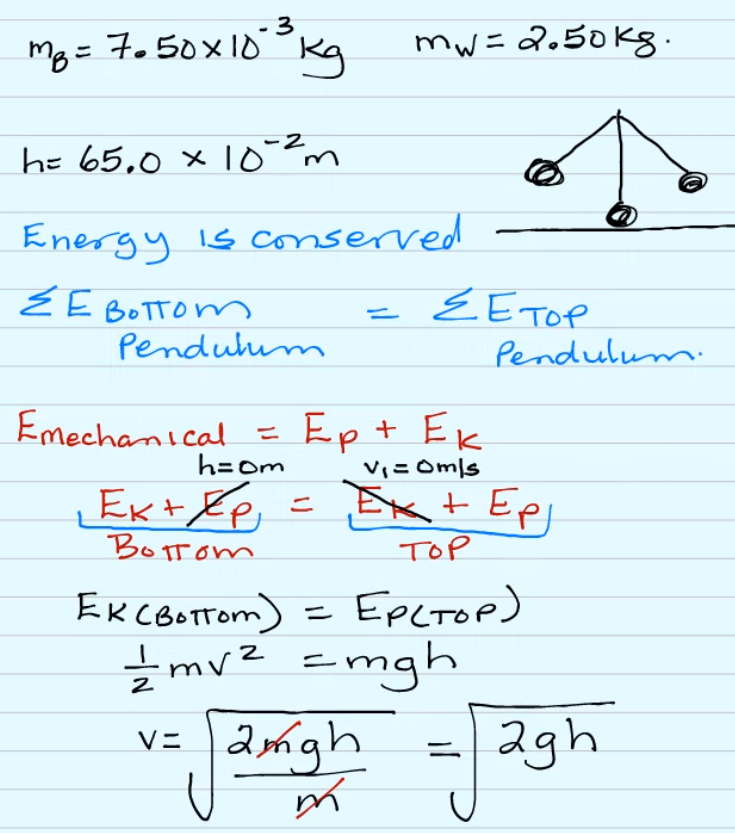 m_B = 7.50×10^-3 kg    m_W = 2.50 kg.
h = 65.0 × 10^-2 m
Energy is conserved
ΣE BOTTOM = ΣE TOP
Pendulum    Pendulum.
Emechanical = Ep + Ek
h=0m    v₁=0m/s
Ek + Ep = Ek + Ep
BOTTOM    TOP
Ek(BOTTOM) = Ep(TOP)
1/2 mv² = mgh
v = √(2mgh/m) = √2gh